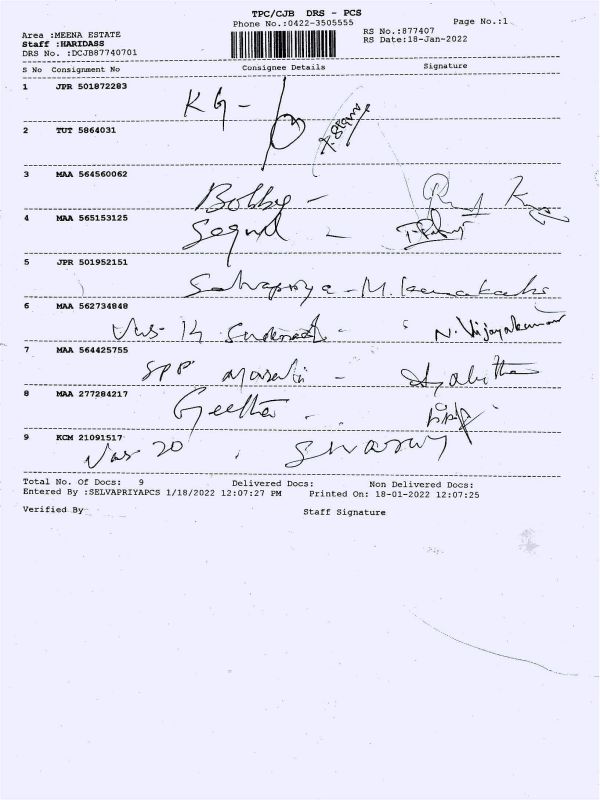 TPC/CJB DRS - PCS
Phone No.:0422-3505555 Page No.:1
Area :MEENA ESTATE RS No.:877407
Staff :HARIDASS RS Date:18-Jan-2022
DRS No. :DCJB87740701
S No Consignment No Consignee Details Signature
1 JPR 501872283
KG -
2 TUT 5864031
3 MAA 564560062
Bobby -
4 MAA 565153125
-
5 JPR 501952151
Selvapriya - M.
6 MAA 562734848
N. Vijayakumar
7 MAA 564425755
SPP -
8 MAA 277284217
Geetha
9 KCM 21091517
20
Total No. Of Docs: 9 Delivered Docs: Non Delivered Docs:
Entered By :SELVAPRIYAPCS 1/18/2022 12:07:27 PM Printed On: 18-01-2022 12:07:25
Verified By Staff Signature